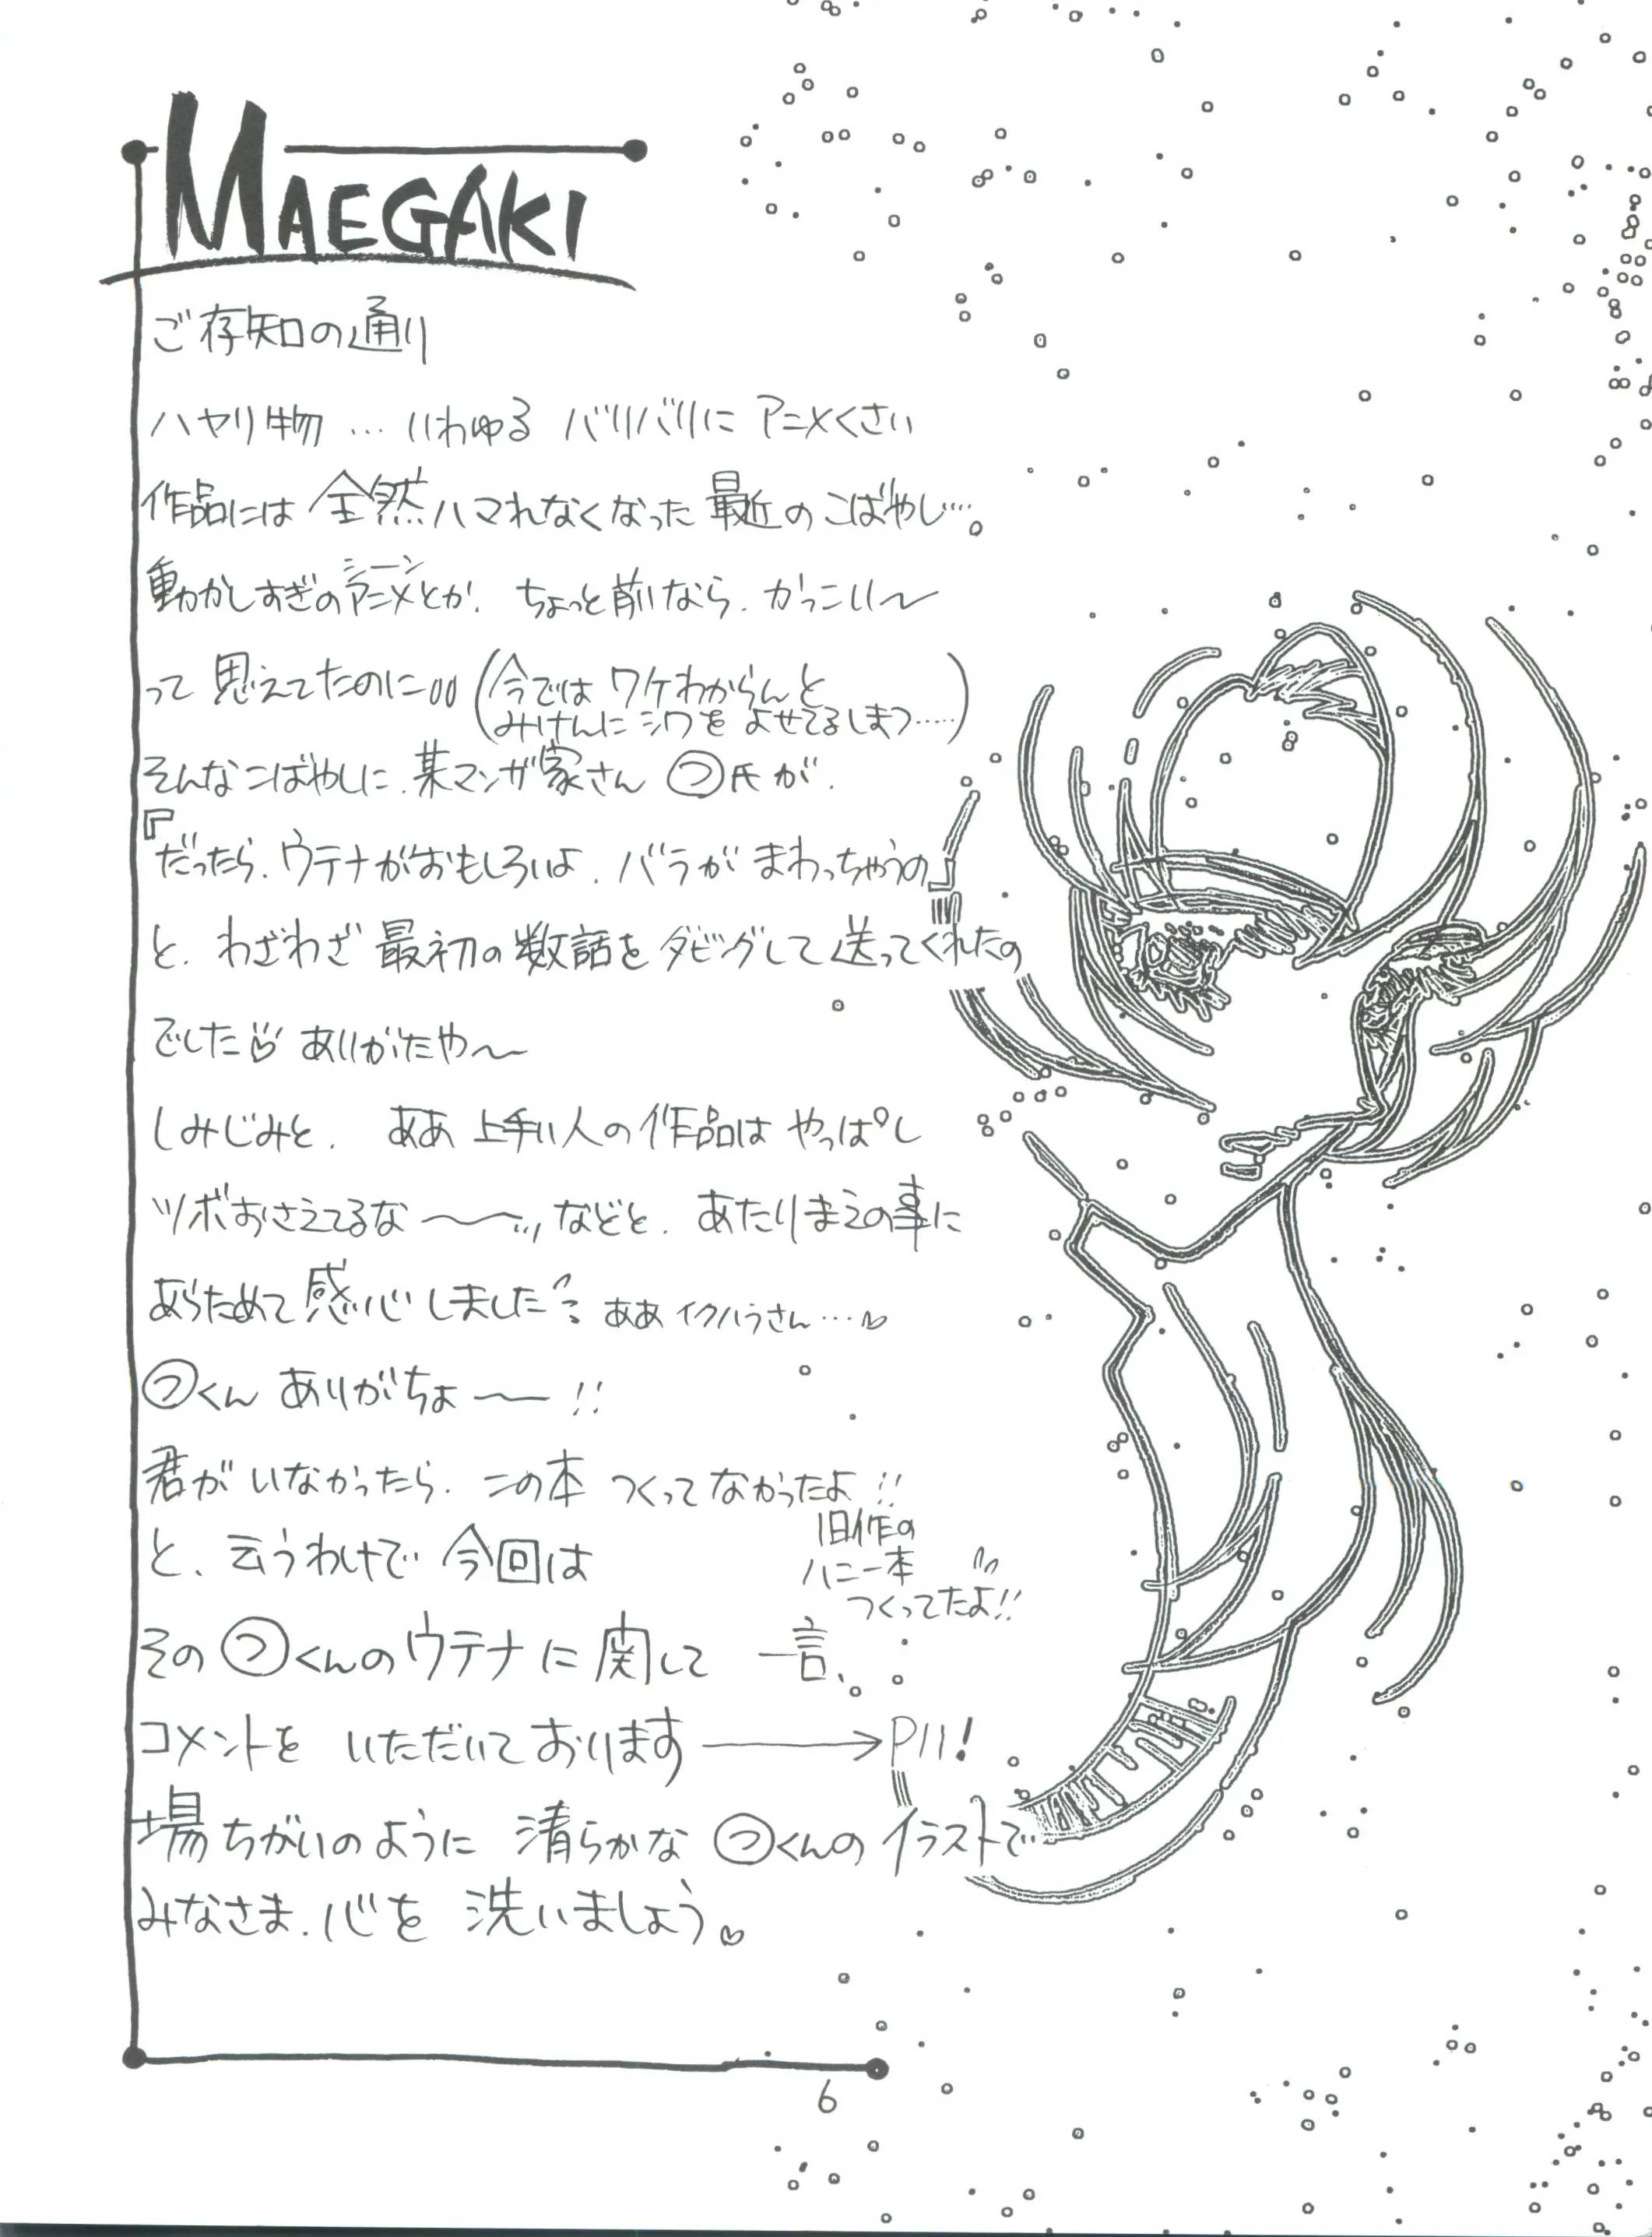 MAEGAKI
ご存知の通り
ハヤリ物…いわゆる バリバリに アニメくさい
作品には 全然ハマれなくなった 最近の こばやし…。
動かしすぎのアニメとか、ちょっと前なら、かっこいい〜
シーン
って 思えてたのに (今では ワケわからんと
みけんに シワを よせてるしまつ……)
そんなこばやしに、某マンガ家さん ㋡氏が、
『だったら、ウテナがおもしろいよ、バラが まわっちゃうの』
と、わざわざ 最初の数話を ダビングして 送ってくれたの
でした♡ ありがたや〜
しみじみと、 ああ 上手い人の 作品は やっぱし
ツボおさえてるな〜〜… などと、あたりまえの事に
あらためて 感心しました ああ イクハラさん…♡
㋡くん ありがちょ〜!!
君が いなかったら、この本 つくってなかったよ!!
旧作の
ハニー本
つくってたよ!!
と、云うわけで 今回は
その ㋡くんの ウテナに 関して 一言、
コメントを いただいております → P11!
場ちがいのように 清らかな ㋡くんの イラストで
みなさま、心を 洗いましょう。♡
6